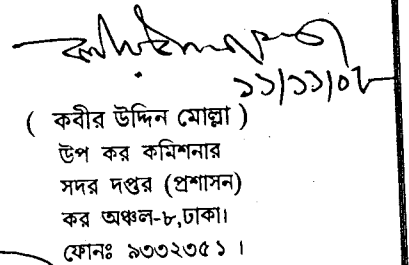 ১১/১১/০৮
( কবীর উদ্দিন মোল্লা )
উপ কর কমিশনার
সদর দপ্তর (প্রশাসন)
কর অঞ্চল-৮,ঢাকা।
ফোনঃ ৯৩৩২৩৫১ ।